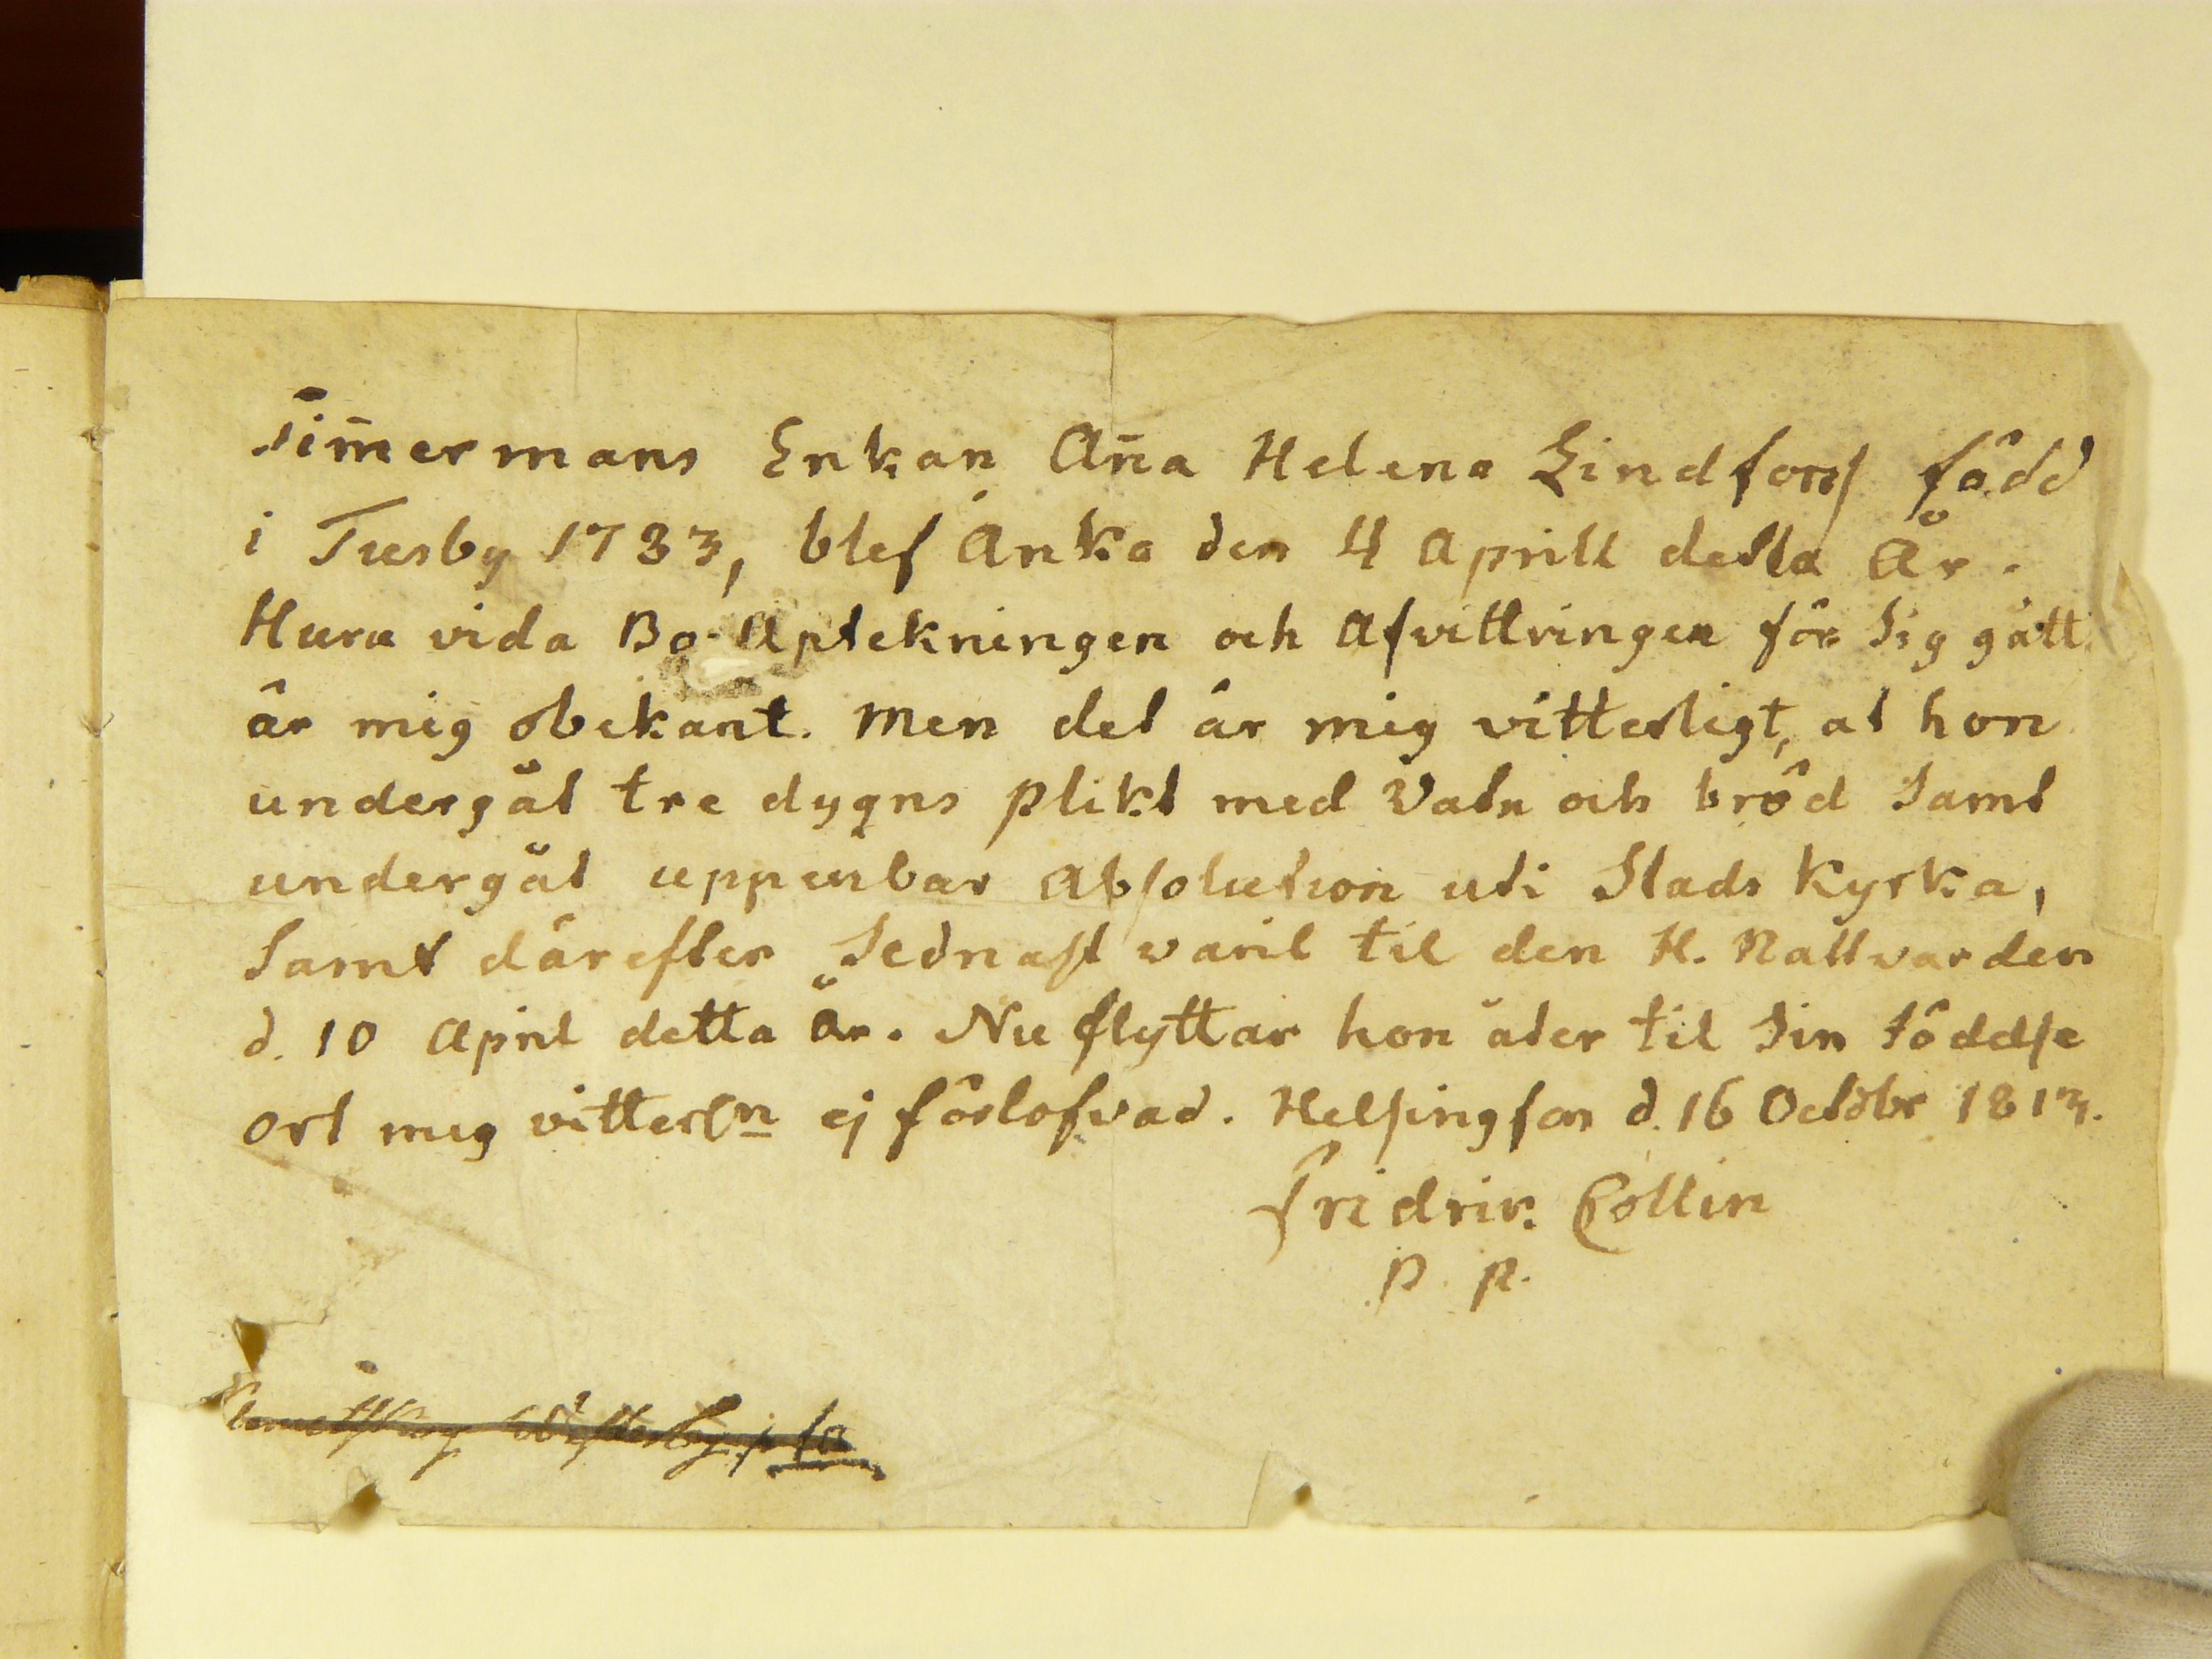 Tim̄ermans Enkan An̄a Helena Lindforss född
i Tusby 1783, blef Änka den 4 Aprill detta År.
Huru vida Bo-Aptekningen och Afvittringen för Sig gått
är mig obekant. Men det är mig vitterligt, at hon
undergåt tre dygns plikt med Vatn och bröd Samt
undergåt uppenbar Absolution uti Stads Kyrka,
Samt därefter Sednast varit til den H. Nattvarden
d. 10 April detta År. Nu flyttar hon åter til Sin födelse
ort mig vitterln ej förlofvad. Helsingfors d. 16 Octobr 1813.
Fridrik Collin
P. p.